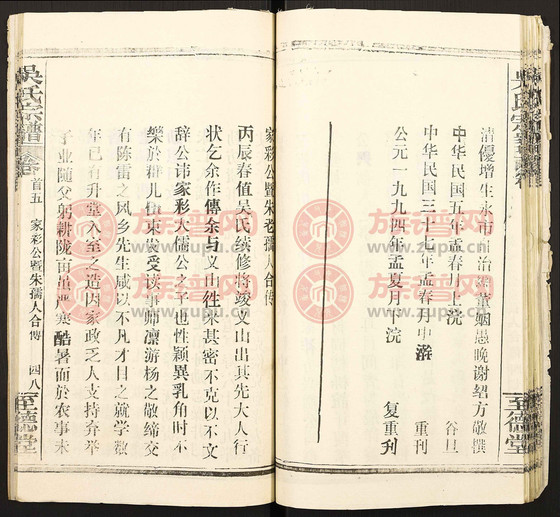 清優增生永市
治深葉姻愚晚谢绍方敬撰
中华民国五年孟春月上浣 谷旦
中华民国三十七年孟春月中澣 重刊
公元一九九四年孟夏月中浣 复重刊
至德堂
家彩公暨朱老孺人合傳
丙辰春值吴氏续修将竣义山出其先大人行
状乞余作傳余与义山往来甚密不克以不文
辞公讳家彩大儒公之子也性颖异乳角时不
樂於群儿伍束发受读事师凛游杨之敬缔交
有陈雷之风乡先生咸以不凡才目之就学数
年已有升堂入室之造因家政乏人支持弃举
子业随父躬耕陇亩虽严寒酷暑而於农事未
吳氏宗譜
卷首五
家彩公暨朱孺人合傳
四八
至德堂
族谱网
www.zupu.cn